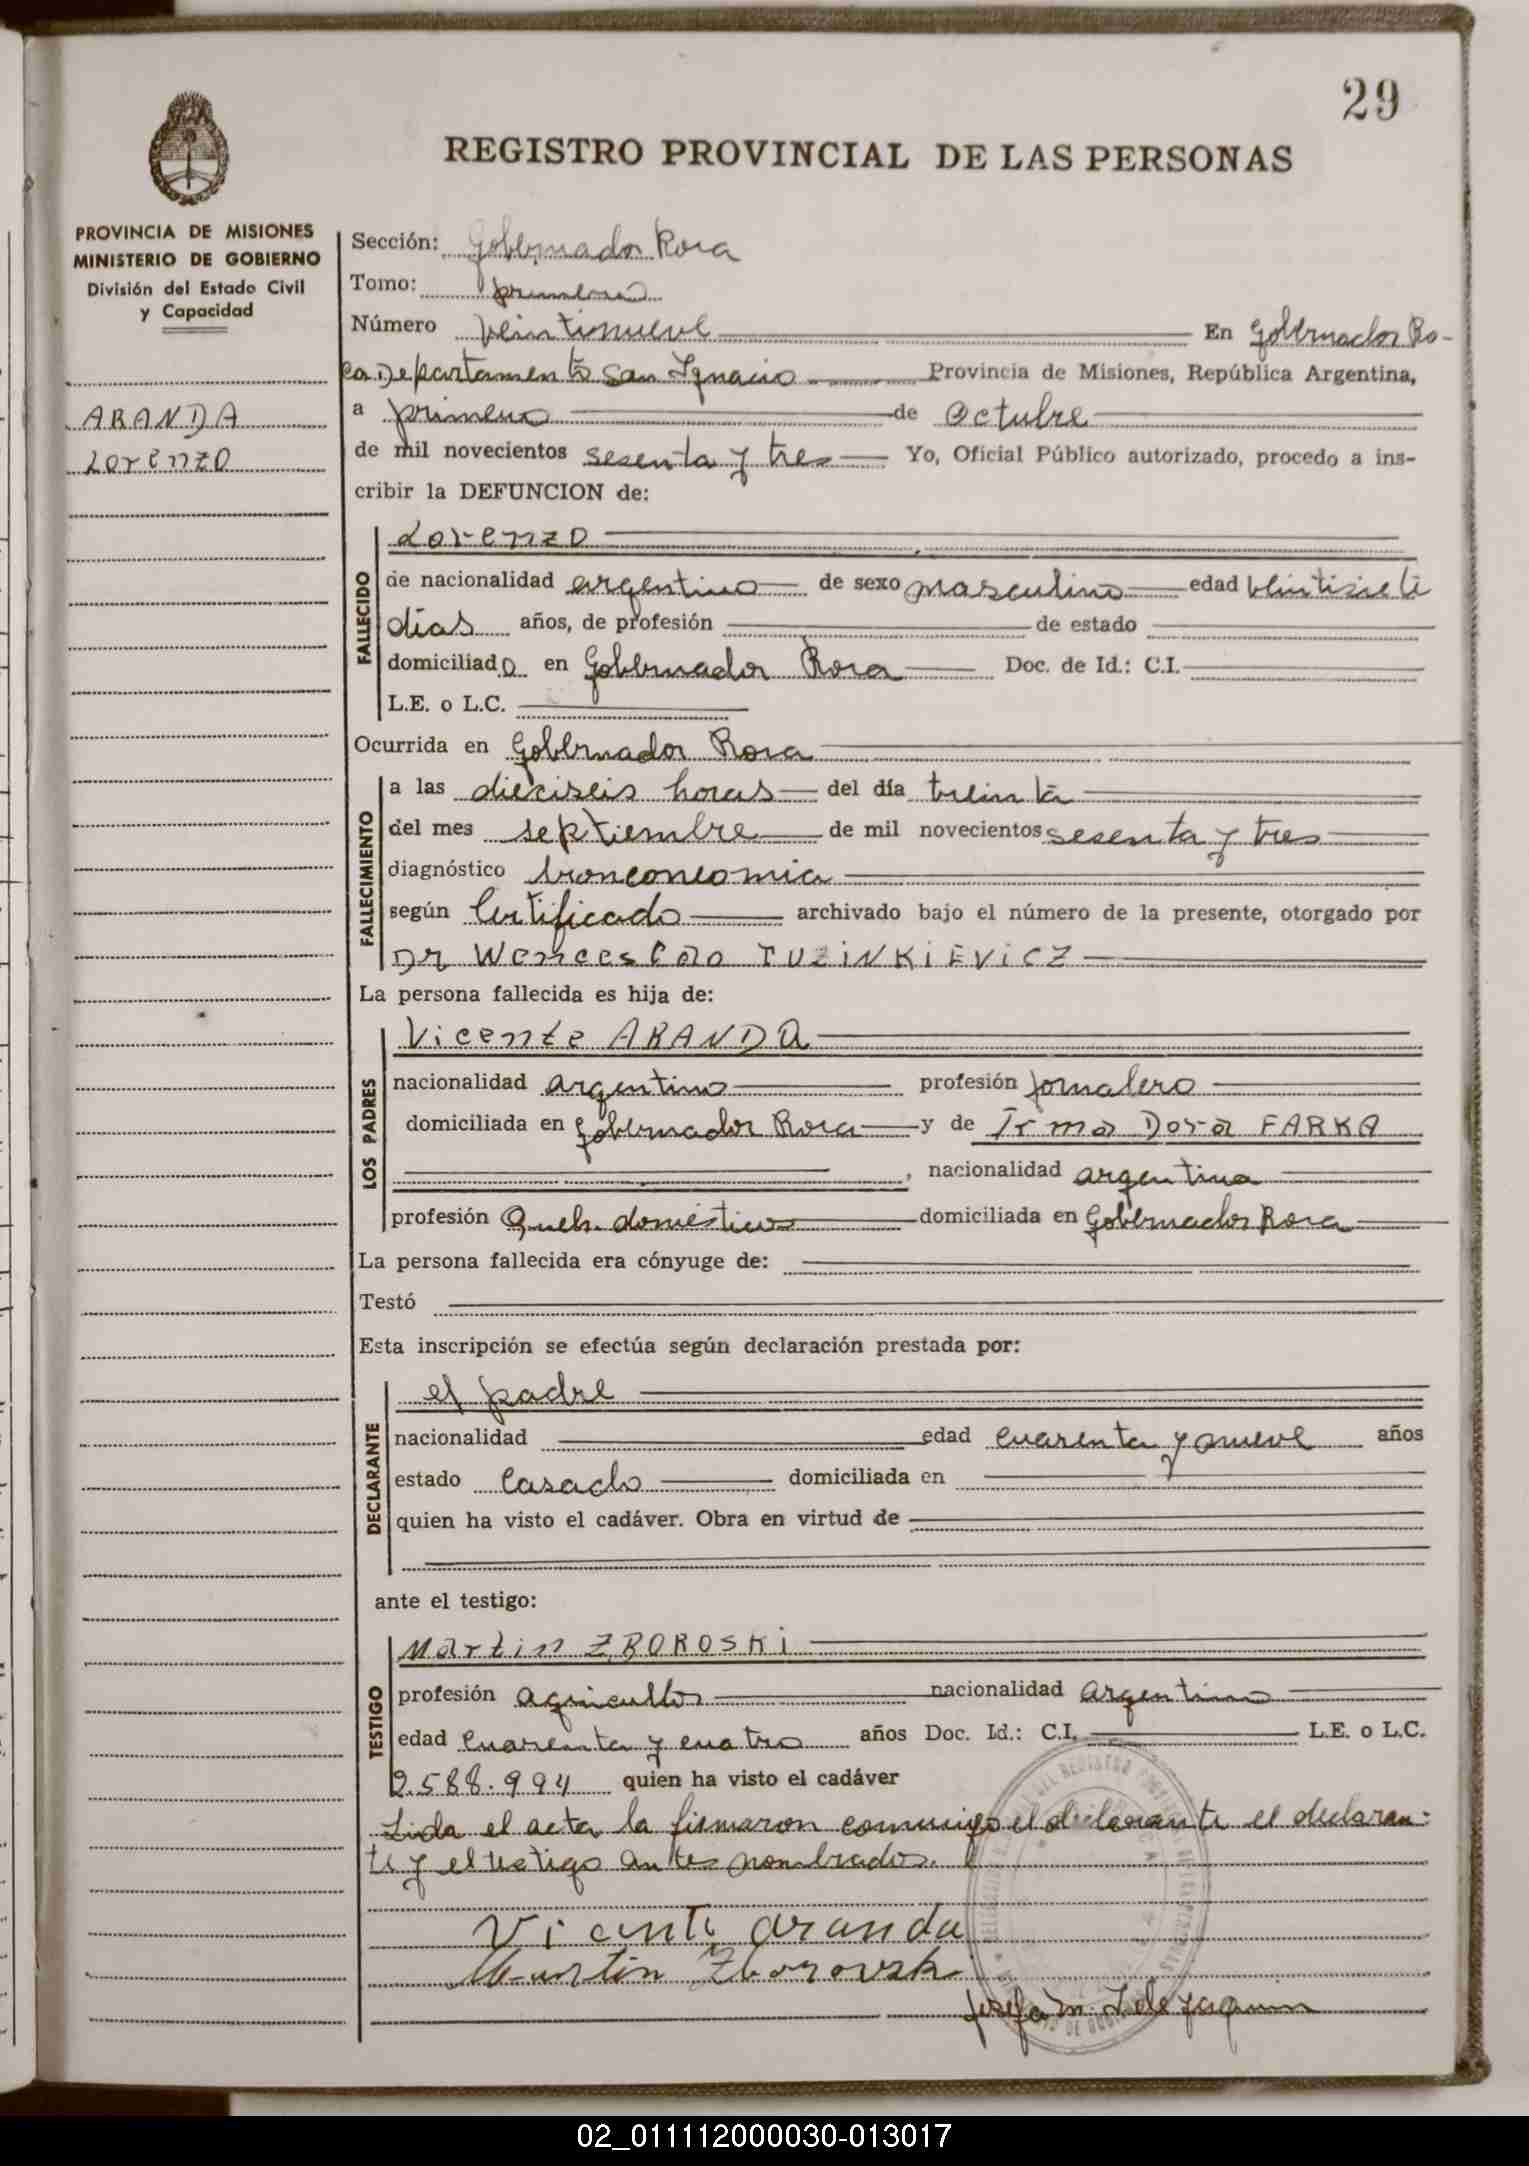 29
REGISTRO PROVINCIAL DE LAS PERSONAS
PROVINCIA DE MISIONES
MINISTERIO DE GOBIERNO
División del Estado Civil
y Capacidad
ARANDA
Lorenzo
Sección: Gobernador Roca
Tomo: primero
Número veintinueve En Gobernador Ro-
ca Departamento San Ignacio Provincia de Misiones, República Argentina,
a primero de Octubre
de mil novecientos sesenta y tres Yo, Oficial Público autorizado, procedo a ins-
cribir la DEFUNCION de:
FALLECIDO
Lorenzo
de nacionalidad argentino de sexo masculino edad veintisiete
días años, de profesión de estado
domiciliado en Gobernador Roca Doc. de Id.: C.I.
L.E. o L.C.
Ocurrida en Gobernador Roca
FALLECIMIENTO
a las dieciseis horas del día treinta
del mes septiembre de mil novecientos sesenta y tres
diagnóstico bronconeomia
según Certificado archivado bajo el número de la presente, otorgado por
Dr Wenceslao TUZINKIEVICZ
La persona fallecida es hija de:
LOS PADRES
Vicente ARANDA
nacionalidad argentino profesión jornalero
domiciliada en Gobernador Roca y de Irma Dora FARKA
, nacionalidad argentina
profesión Queh. domésticos domiciliada en Gobernador Roca
La persona fallecida era cónyuge de:
Testó
Esta inscripción se efectúa según declaración prestada por:
DECLARANTE
el padre
nacionalidad edad cuarenta y nueve años
estado Casado domiciliada en
quien ha visto el cadáver. Obra en virtud de
ante el testigo:
TESTIGO
Martin ZBOROSKI
profesión agricultor nacionalidad argentino
edad cuarenta y cuatro años Doc. Id.: C.I. L.E. o L.C.
2.588.994 quien ha visto el cadáver
Lida el acta la firmaron conmigo el declarante el declaran-
te y el testigo antes nombrados.
Vicente aranda
Martin Zborovski
Josefa M. de
02_011112000030-013017